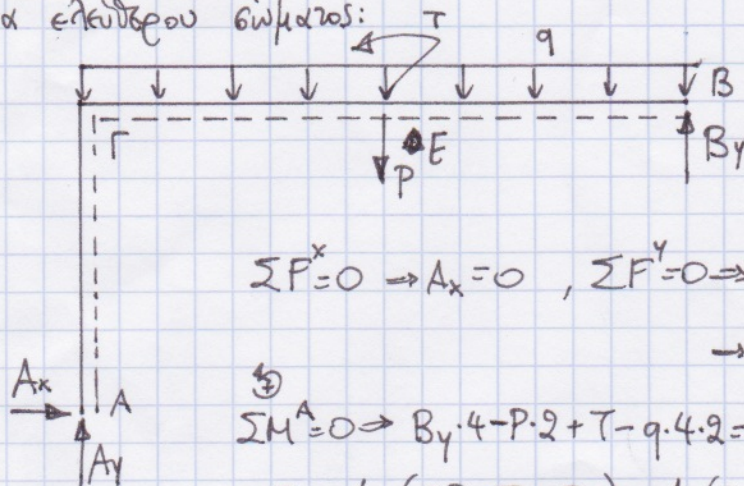 α ελευθέρου σώματος:
T
q
B
Γ
P
E
By
ΣF^x=0 → A_x=0 , ΣF^y=0 ⇒
→
A_x
A
ΣM^A=0 ⇒ By·4-P·2+T-q·4·2=
Ay